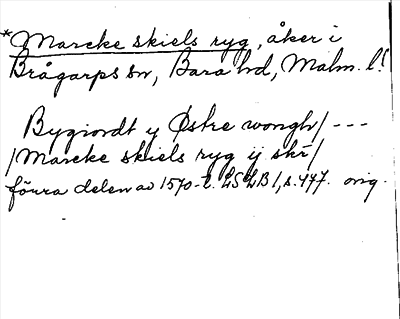 *Marcke skiels ryg, åker i
Brågarps sn, Bara hd, Malm. l!
Bygiordt y Østre wongh/ ---
/Marcke skiels ryg ij skr/
förra delen av 1570-t. LSLB 1, s. 477. orig.